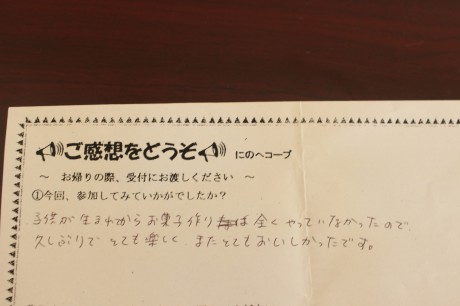 ご感想をどうぞ にのへコープ
～ お帰りの際、受付にお渡しください ～
①今回、参加してみていかがでしたか？
子供が生まれてからお菓子作りは全くやっていなかったので、
久しぶりでとても楽しく、またとてもおいしかったです。